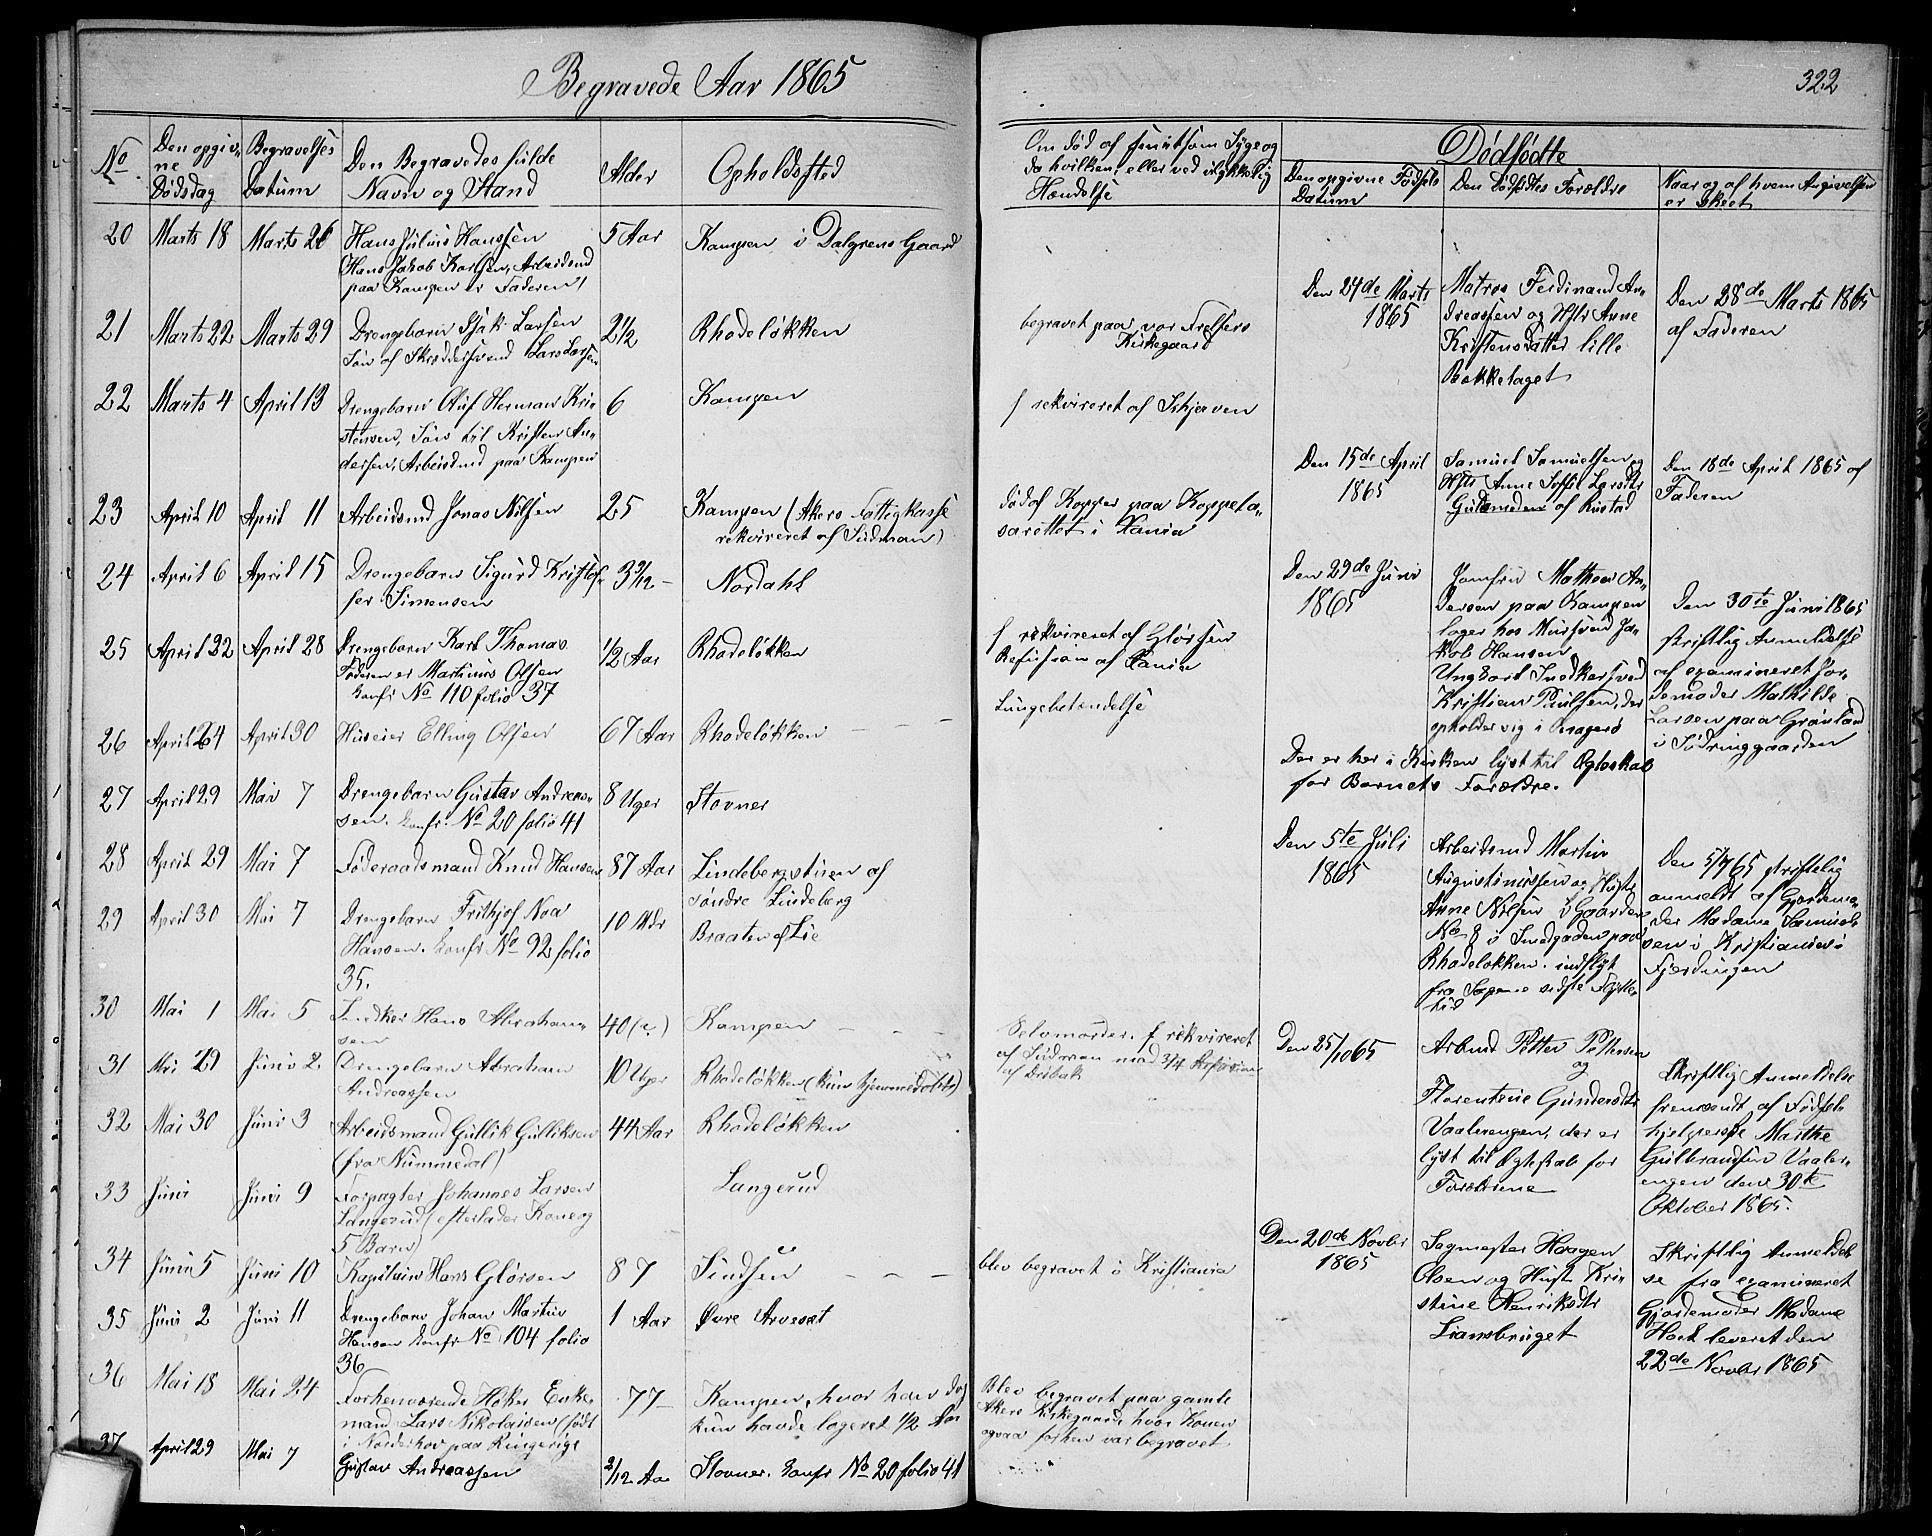 Begravede Aar 1865
No
Den opgiv-
ne
Dødsdag
Begravelses
Datum
Den Begravedes fulde
Navn og Stand
Alder
Opholdssted
20 Marts 18 Marts 26 Hans Julius Hanssen 5 Aar Kampen i Dalgrens Gaard
(Hans Jakob Karlsen, Arbeidsmd
paa Kampen er Faderen)
21 Marts 22 Marts 29 Drengebarn Isak Larsen 2 1/2 Rhodeløkken
Søn af Skræddersvend Lars Larsen
22 Marts 4 April 13 Drengebarn Oluf Herman Kri- 6 Kampen
stensen, Søn til Kristen An-
dersen, Arbeidsmd paa Kampen
23 April 10 April 11 Arbeidsmd Jonas Nilsen 25 Kampen (Akers Fattigkasse
rekvireret af Sudman)
24 April 6 April 15 Drengebarn Sigurd Kristof- 3 3/12 - Nordahl
fer Simensen
25 April 22 April 28 Drengebarn Karl Thomas 1/2 Aar Rhodeløkken
Faderen er Martinius Olsen
konfr No 110 folio 37
26 April 24 April 30 Huseier Elling Olsen 67 Aar Rhodeløkken
27 April 29 Mai 7 Drengebarn Gustav Andreas- 8 Uger Stovner
sen. konfr. No 20 folio 41
28 April 29 Mai 7 Føderaadsmand Knud Hansen 87 Aar Lindebergstuen af
søndre Lindeberg
29 April 30 Mai 7 Drengebarn Frithjof Noa 10 Mdr Braaten af Lie
Hansen. konfr No 92 folio
35.
30 Mai 1 Mai 5 Snedker Hans Abraham- 40 Kampen
sen
31 Mai 29 Juni 2 Drengebarn Abraham 10 Uger Rhodeløkken (kun hjemmedøbt)
Andreassen
32 Mai 30 Juni 3 Arbeidsmand Gullik Gulliksen 44 Aar Rhodeløkken
(fra Nummedal)
33 Juni Juni 9 Forpagter Johannes Larsen Langerud
Langerud (efterlader Kone og
5 Barn)
34 Juni 5 Juni 10 Kaptein Hans Glørsen 87
35 Juni 2 Juni 11 Drengebarn Johan Martin 1 Aar Øvre Arvesæt
Hansen konfr No 104 folio
36
36 Mai 18 Mai 24 Forhenværende Høker Enke- 77 Kampen, hvor han dog
mand Lars Nikolaisen (født kun havde logeret 1/2 Aar
i Norderhov paa Ringerige
37 April 29 Mai 7 Gustav Andreassen 2/12 Aar Stovner. konfr No 20 folio 41
322
Om død af smitsom Syge og
da hvilken, eller ved ulykkelig
Hændelse
Dødfødte
Den opgivne Fødsels
Datum
Den Dødfødtes Forældre
Naar og af hvem Angivelsen
er skeet
begravet paa vor Frelsers
Kirkegaard
f rekvireret af Skjerven
død af Kopper paa Koppela-
sarettet i Xania
f rekvireret af Glørsen
Refusion af Xania
Lungebetændelse
Selvmorder. f rekvireret
af Sudman med 3/4 Refusion
af Drøbak
blev begravet i Kristiania
Blev begravet paa gamle
Akers Kirkegaard, hvor Konen
ogsaa forhen var begravet
Den 24de Marts
1865
Matros Ferdinand An-
dreassen og Hst Anne
Kristensdatter lille
Bækkelaget
Den 28de Marts 1865
af Faderen
Den 15de April
1865
Samuel Samuelsen og
Hst Anne Sofie Larsdtr
Gulsmeden af Rustad
Den 18de April 1865 af
Faderen
Den 29de Juni
1865
Jomfru Mathea An-
dersen paa Kampen
loger hos Mursvend Ja-
kob Hansen
Ungkarl Snedkersvend
Kristian Paulsen, der
opholder sig i Kragerø
Der er her i Kirken lyst til Ægteskab
for Barnets Forældre.
Den 30te Juni 1865
skriftlig Anmeldelse
af examineret Jor-
demoder Mathilde
Larsen paa Grønland
i Sødringgaarden
Den 5te Juli
1865
Arbeidsmd Martin
Augustinussen og Hustr
Anne Nilsen i Gaarden
No 8 i Smedgaden paa
Rhodeløkken. indflyt
fra sidste Flytte-
tid
Den 5/7 65 skriftelig
anmeldt af Gjordemo-
der Madame Samuel-
sen i Kristiania
Fjerdingen
Den 25/10 65
Arbmd Petter Pettersen
og
Florentine Gundersdtr
Vaalerengen, der er
lyst til Ægteskab for
Forældrene
Skriftlig Anmeldelse
fremsendt af Fødsels
hjelperske Marthe
Gulbrandsen Vaaler-
engen den 30te
Oktober 1865.
Den 20de Novbr
1865
Sagmester Haagen
Olsen og Hust Kri-
stine Henriksdtr
Liansbruget
Skriftlig Anmeldel-
se fra examineret
Gjordemoder Madame
Høck leveret den
22de Novbr 1865